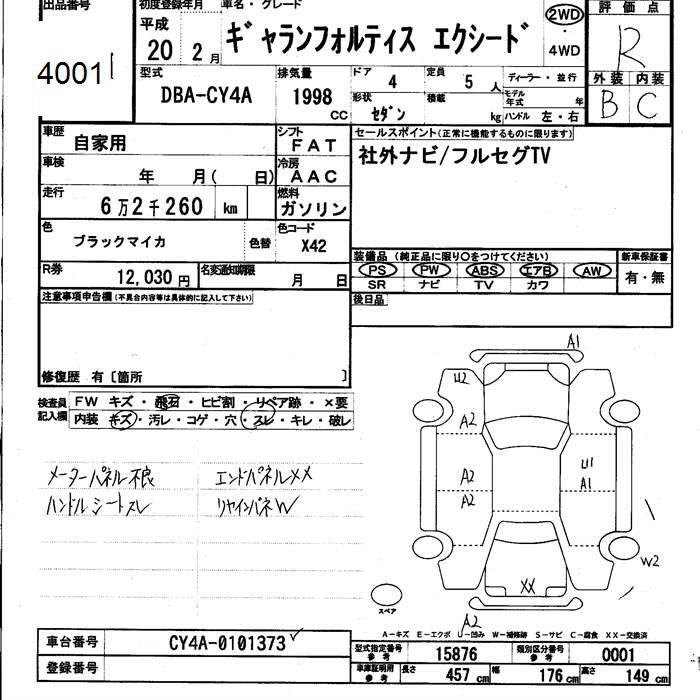 出品番号 初度登録年月 車名・グレード 2WD 評価点
平成
20 2月 ギャランフォルティス エクシード ・ 4WD R
40011
型式 排気量 ドア 4 定員 5人 ディーラー・並行 外装 内装
DBA-CY4A 1998 CC 形状 セダン 積載 kg モデル年式 年 B C
ハンドル 左・右
車歴 自家用 シフト FAT セールスポイント(正常に機能するものに限ります)
車検 年 月( 日) 冷房 AAC 社外ナビ/フルセグTV
走行 6万2千260 km 燃料 ガソリン
色 ブラックマイカ 色替 色コード X42
装備品(純正品に限り〇をつけてください) 新車保証書
R券 12,030円 名変通知期限 月 日 PS PW ABS エアB AW 有・無
SR ナビ TV カワ
注意事項申告欄(不具合内容等は具体的に記入して下さい) 後日品
修復歴 有〔箇所 〕
検査員記入欄 FW キズ・飛石・ヒビ割・リペア跡・×要
内装 キズ・汚レ・コゲ・穴・スレ・キレ・破レ
メーターパネル不良 エンドパネルXX
ハンドルシートスレ リヤインパネW
A1
U2
A2
A2 U1
A2 A1
W2
XX
スペア
A2
A-キズ E-エクボ U-凹み W-補修跡 S-サビ C-腐食 XX-交換済
車台番号 CY4A-0101373
型式指定番号 参考 15876 類別区分番号 参考 0001
登録番号
車庫証明用 参考 長さ 457 cm 幅 176 cm 高さ 149 cm